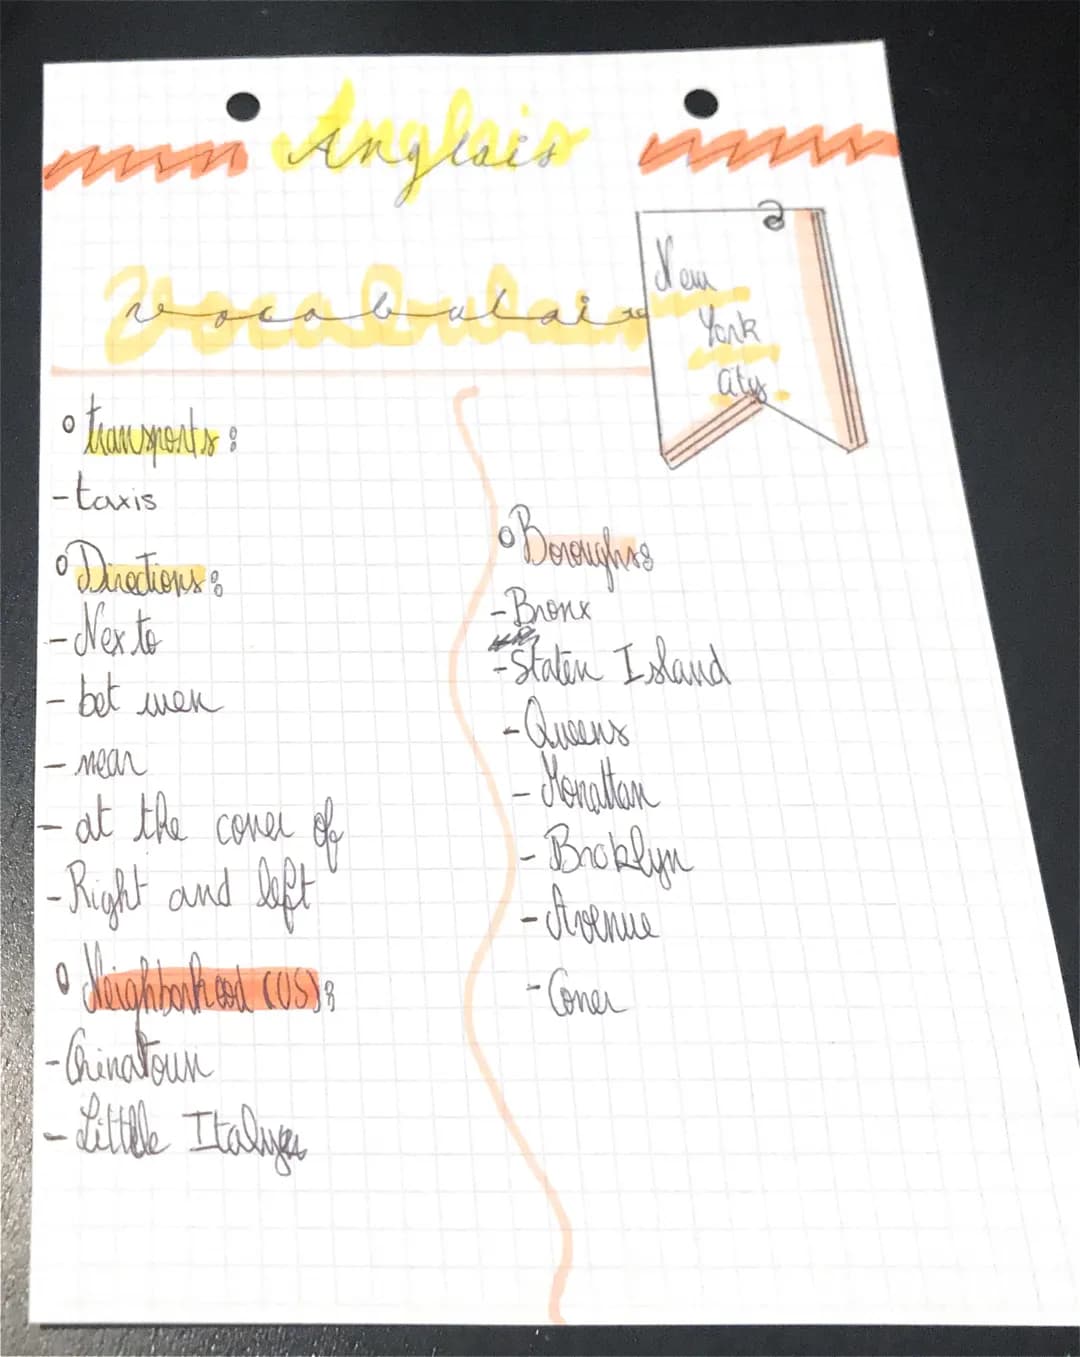 Anglais
vocabulaire
New
York
City
° transports :
- taxis
° Directions :
- Nex to
- bet wen
- near
- at the coner of
- Right and left
° Neighborhood (US) :
- Chinatown
- Little Italy
° Boroughs
- Bronx
- Staten Island
- Queens
- Manattan
- Broklyn
- Avenue
- Coner